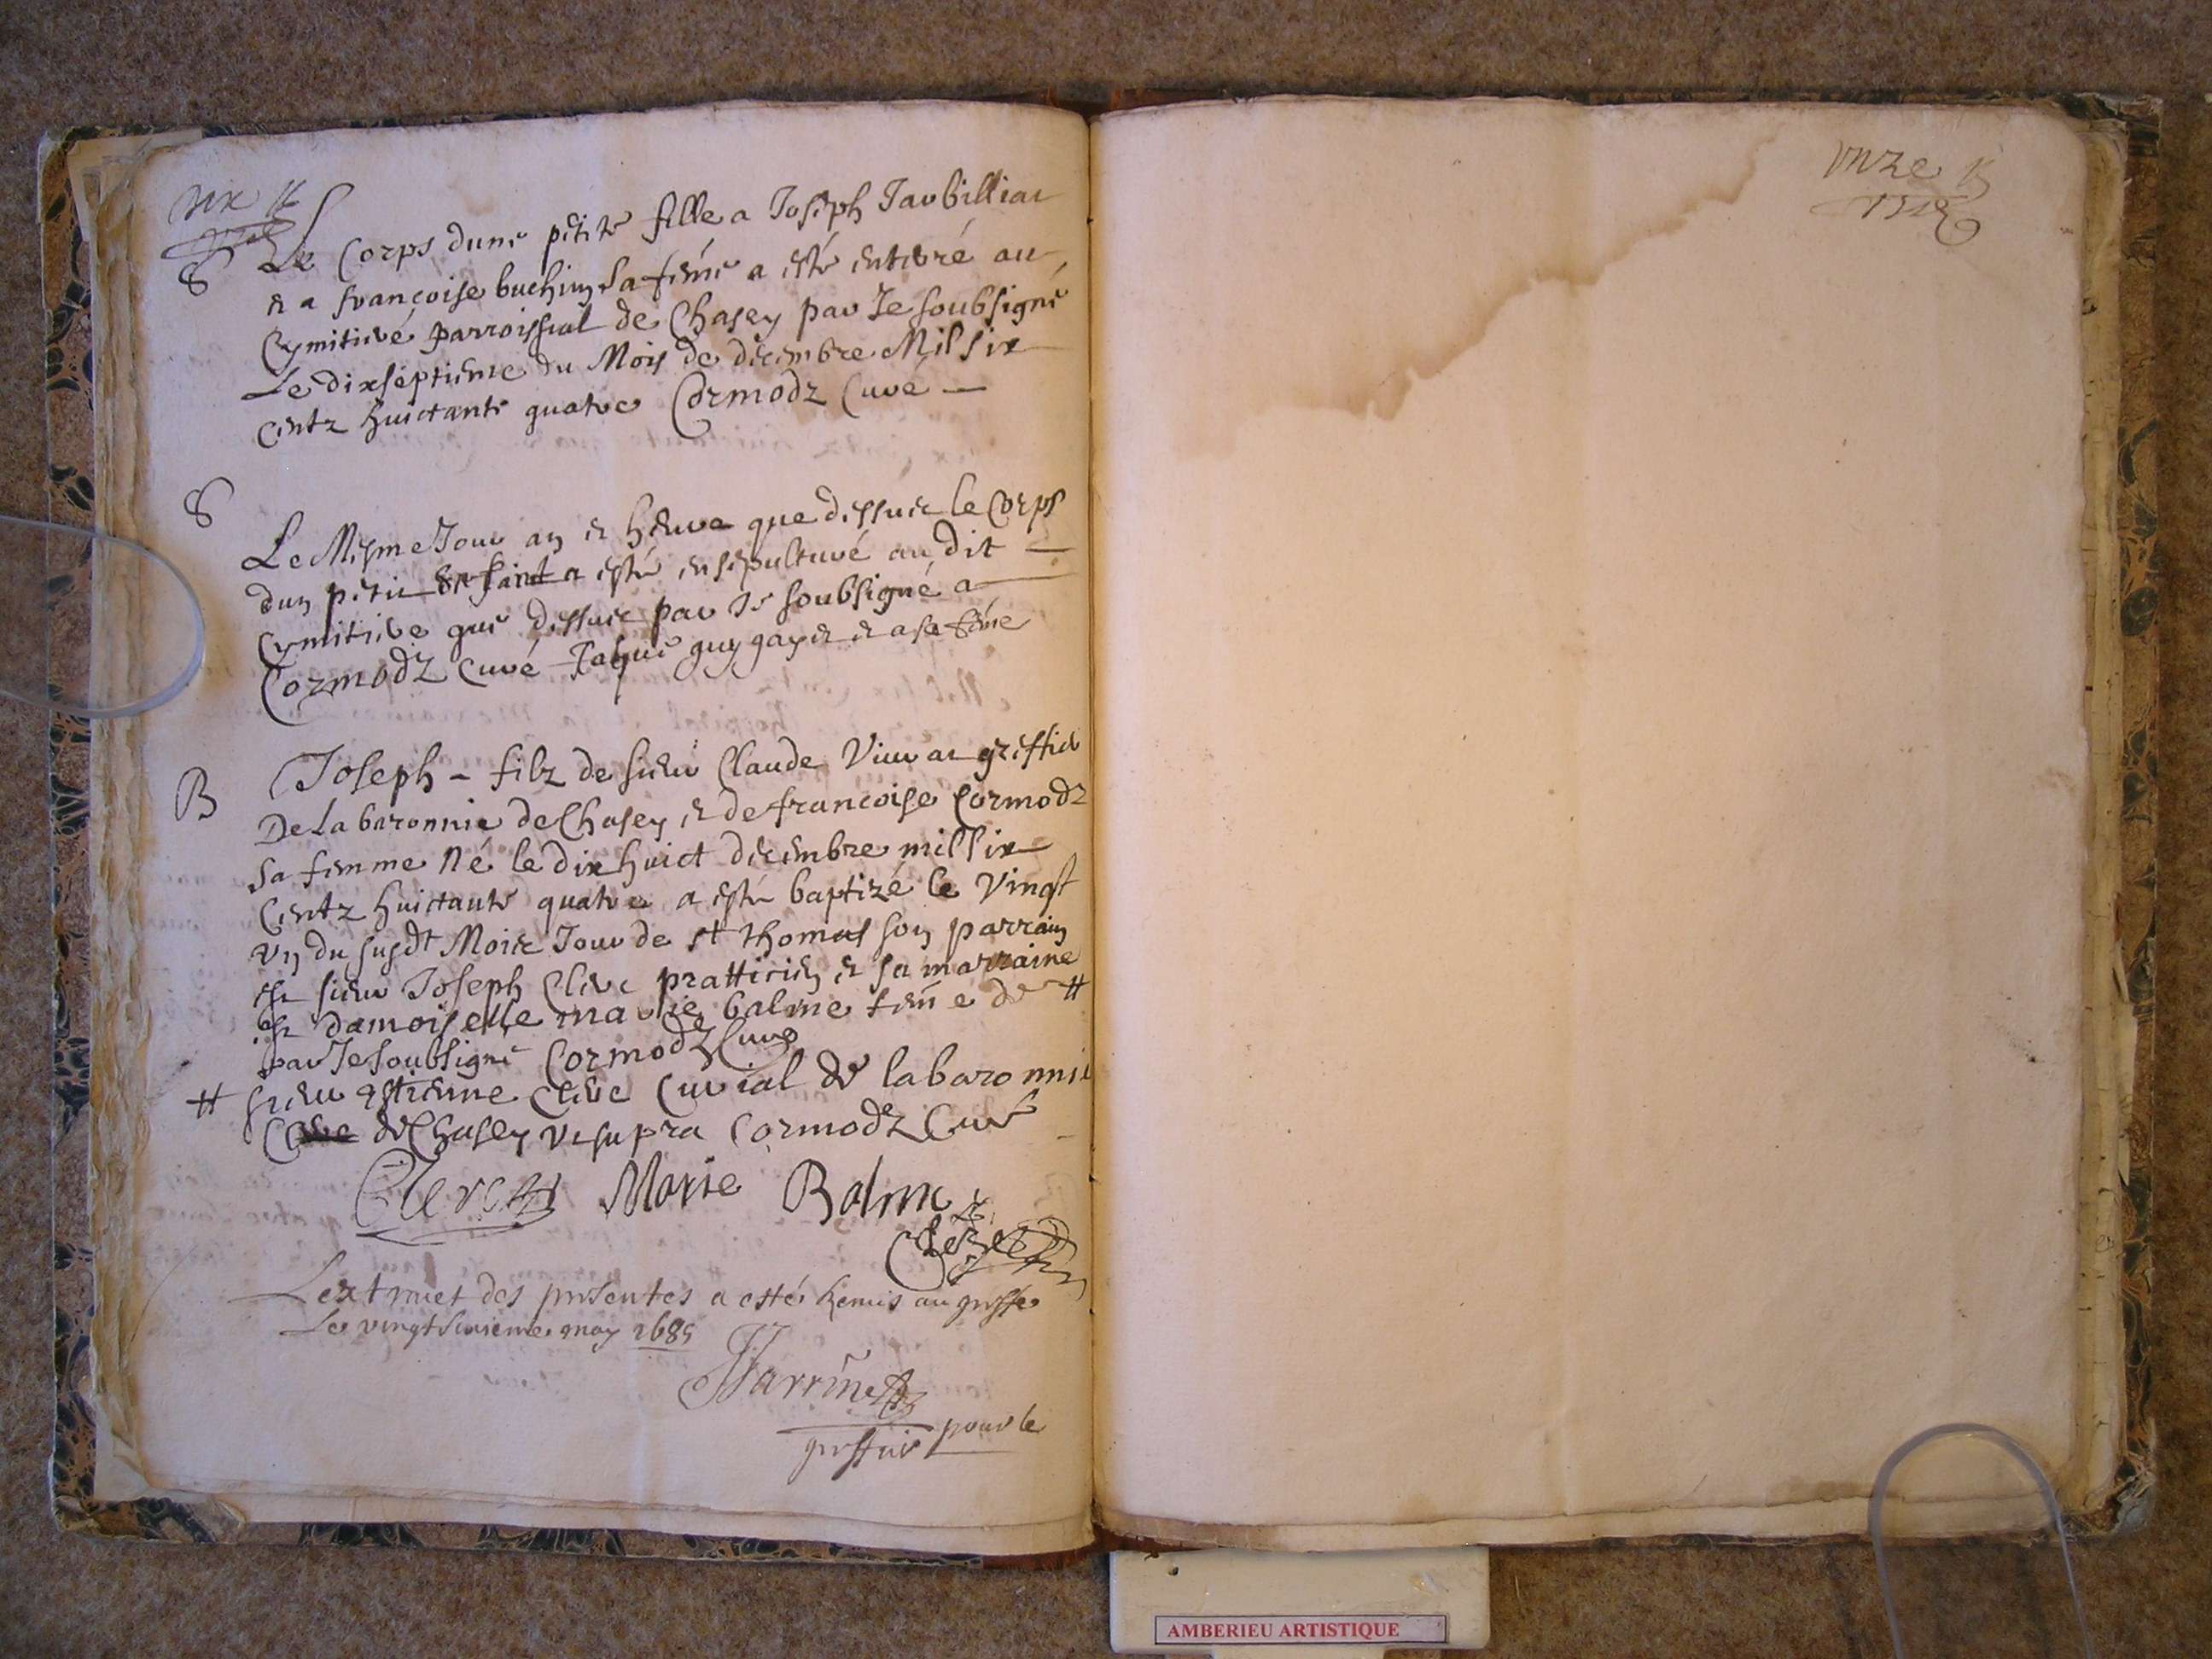 dix
S Le Corps dune petite fille a Joseph Jarbilliat
et a françoise buchin sa feme a esté enterré au
Cymitiere parroissial de Chasey par Je soubsigné
Le dixseptieme du Mois de decembre Mil six
centz huictante quatre Cormodz Curé
S Le Mesme Jour an et heure que dessus le Corps
dun petit enfant a esté ensepulturé au dit
Cymitiere que dessus par Je soubsigné a
Cormodz Curé Jaque guygaz et a sa feme
B Joseph filz de sieur Claude greffier
De La baronnie de Chasey et de francoise Cormodz
sa femme né le dix huict decembre mil six
Centz huictante quatre a esté baptizé le Vingt
un du susdt Mois Jour de st thomas son parrain
est sieur Joseph Clerc pratticien et sa marraine
est damoiselle marie balme feme de #
par Je soubsigné Cormodz Curé
# sieur estienne Clerc Curial de la baronnie
de Chasey Ut supra Cormodz Curé
Clerc Marie Balme
Clerc
Lextrait des presentes a esté Remis au greffe
Le vingt sixieme may 1685
greffier pour le
unze
AMBERIEU ARTISTIQUE